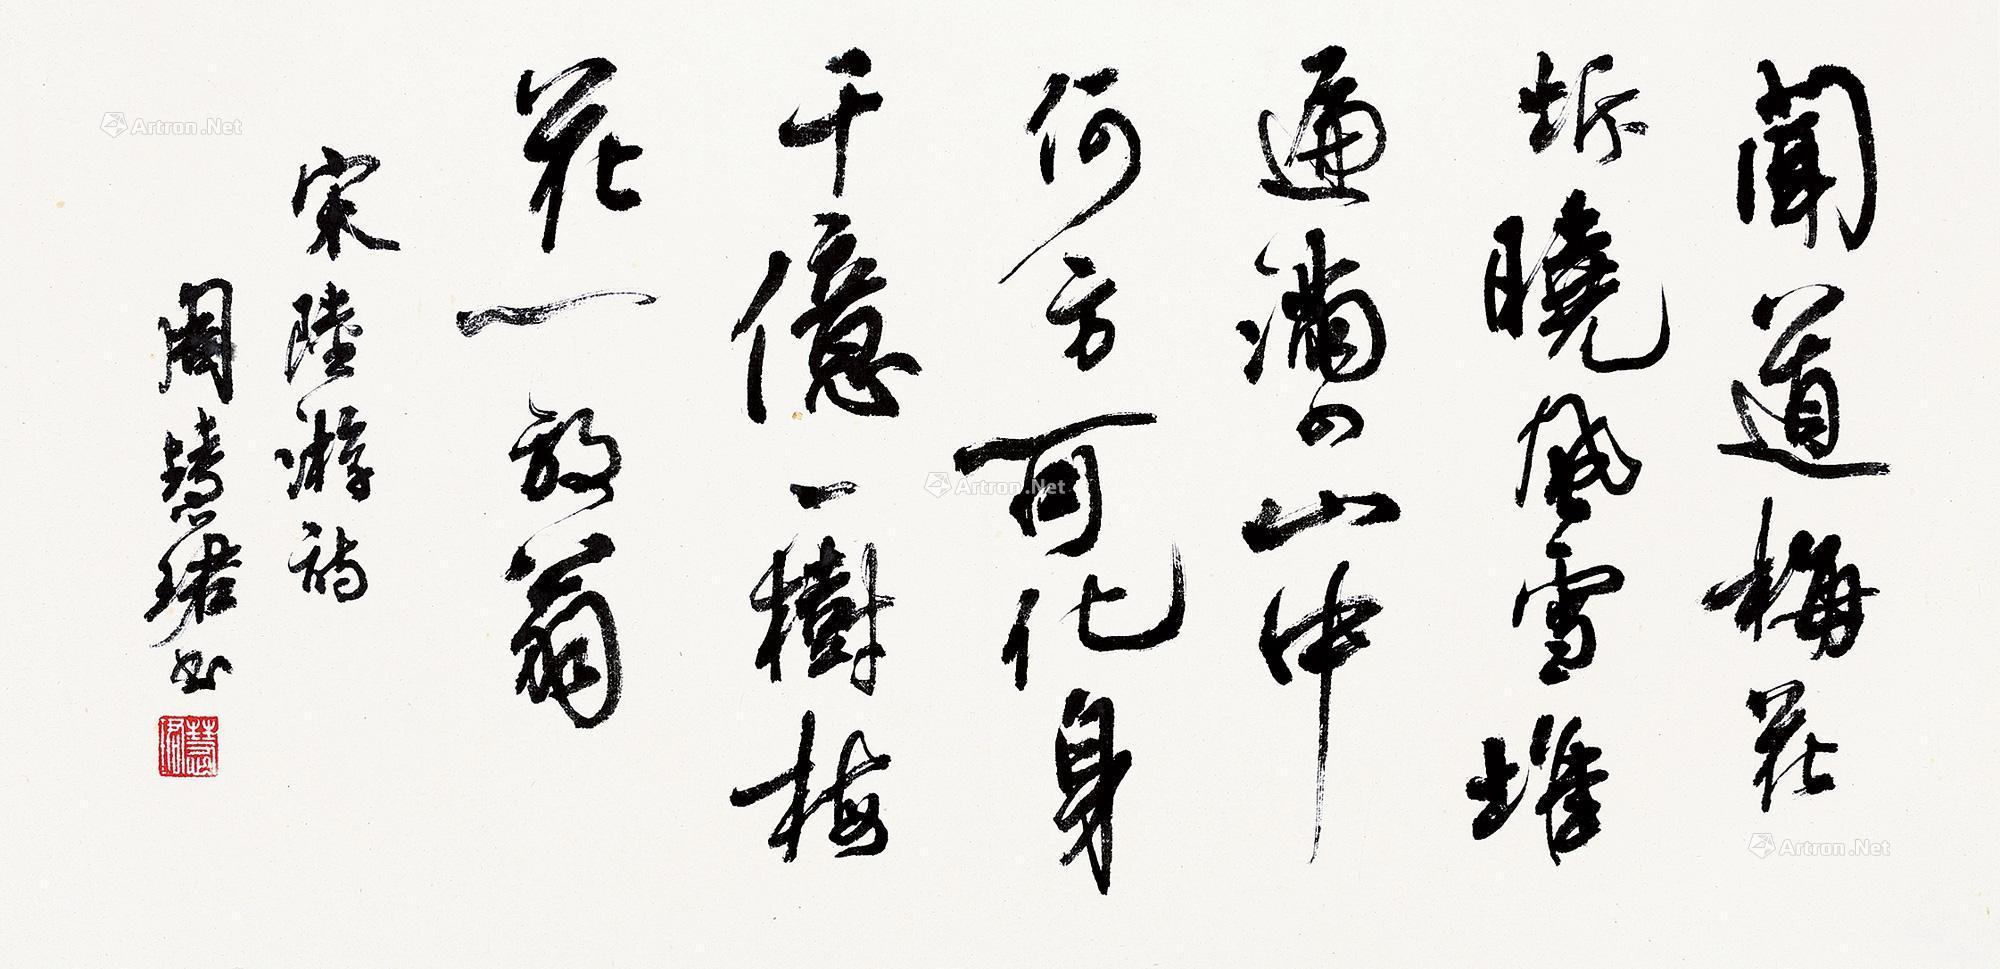 聞道梅花
坼曉風雪堆
遍滿四山中
何方可化身
千億一樹梅
花一放翁
宋陸游詩
周慧珺書
慧珺
Artron.Net
Artron.Net
Artron.Net